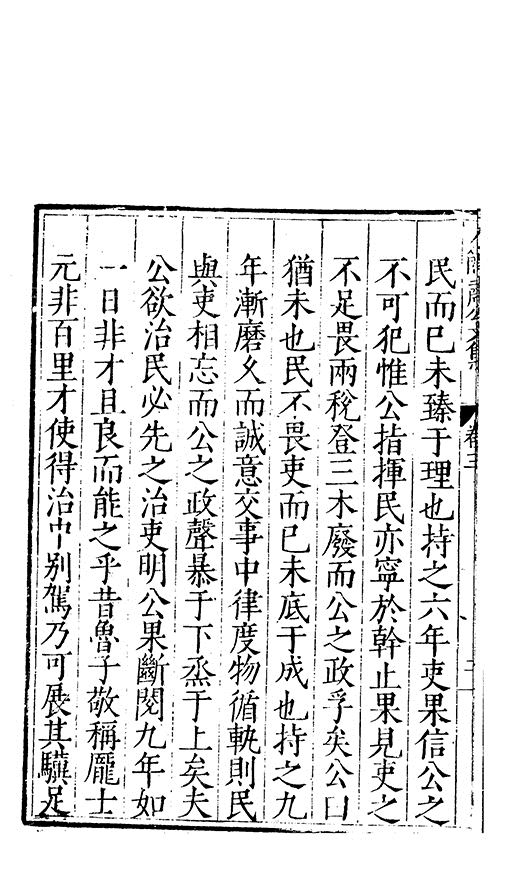 民而已未臻于理也持之六年吏果信公之
不可犯惟公指揮民亦寧於幹止果見吏之
不足畏兩稅登三木廢而公之政孚矣公曰
猶未也民不畏吏而已未底于成也持之九
年漸磨久而誠意交事中律度物循軌則民
與吏相忘而公之政聲暴于下烝于上矣夫
公欲治民必先之治吏明公果斷閱九年如
一日非才且良而能之乎昔魯子敬稱龐士
元非百里才使得治中别駕乃可展其驥足
卷三